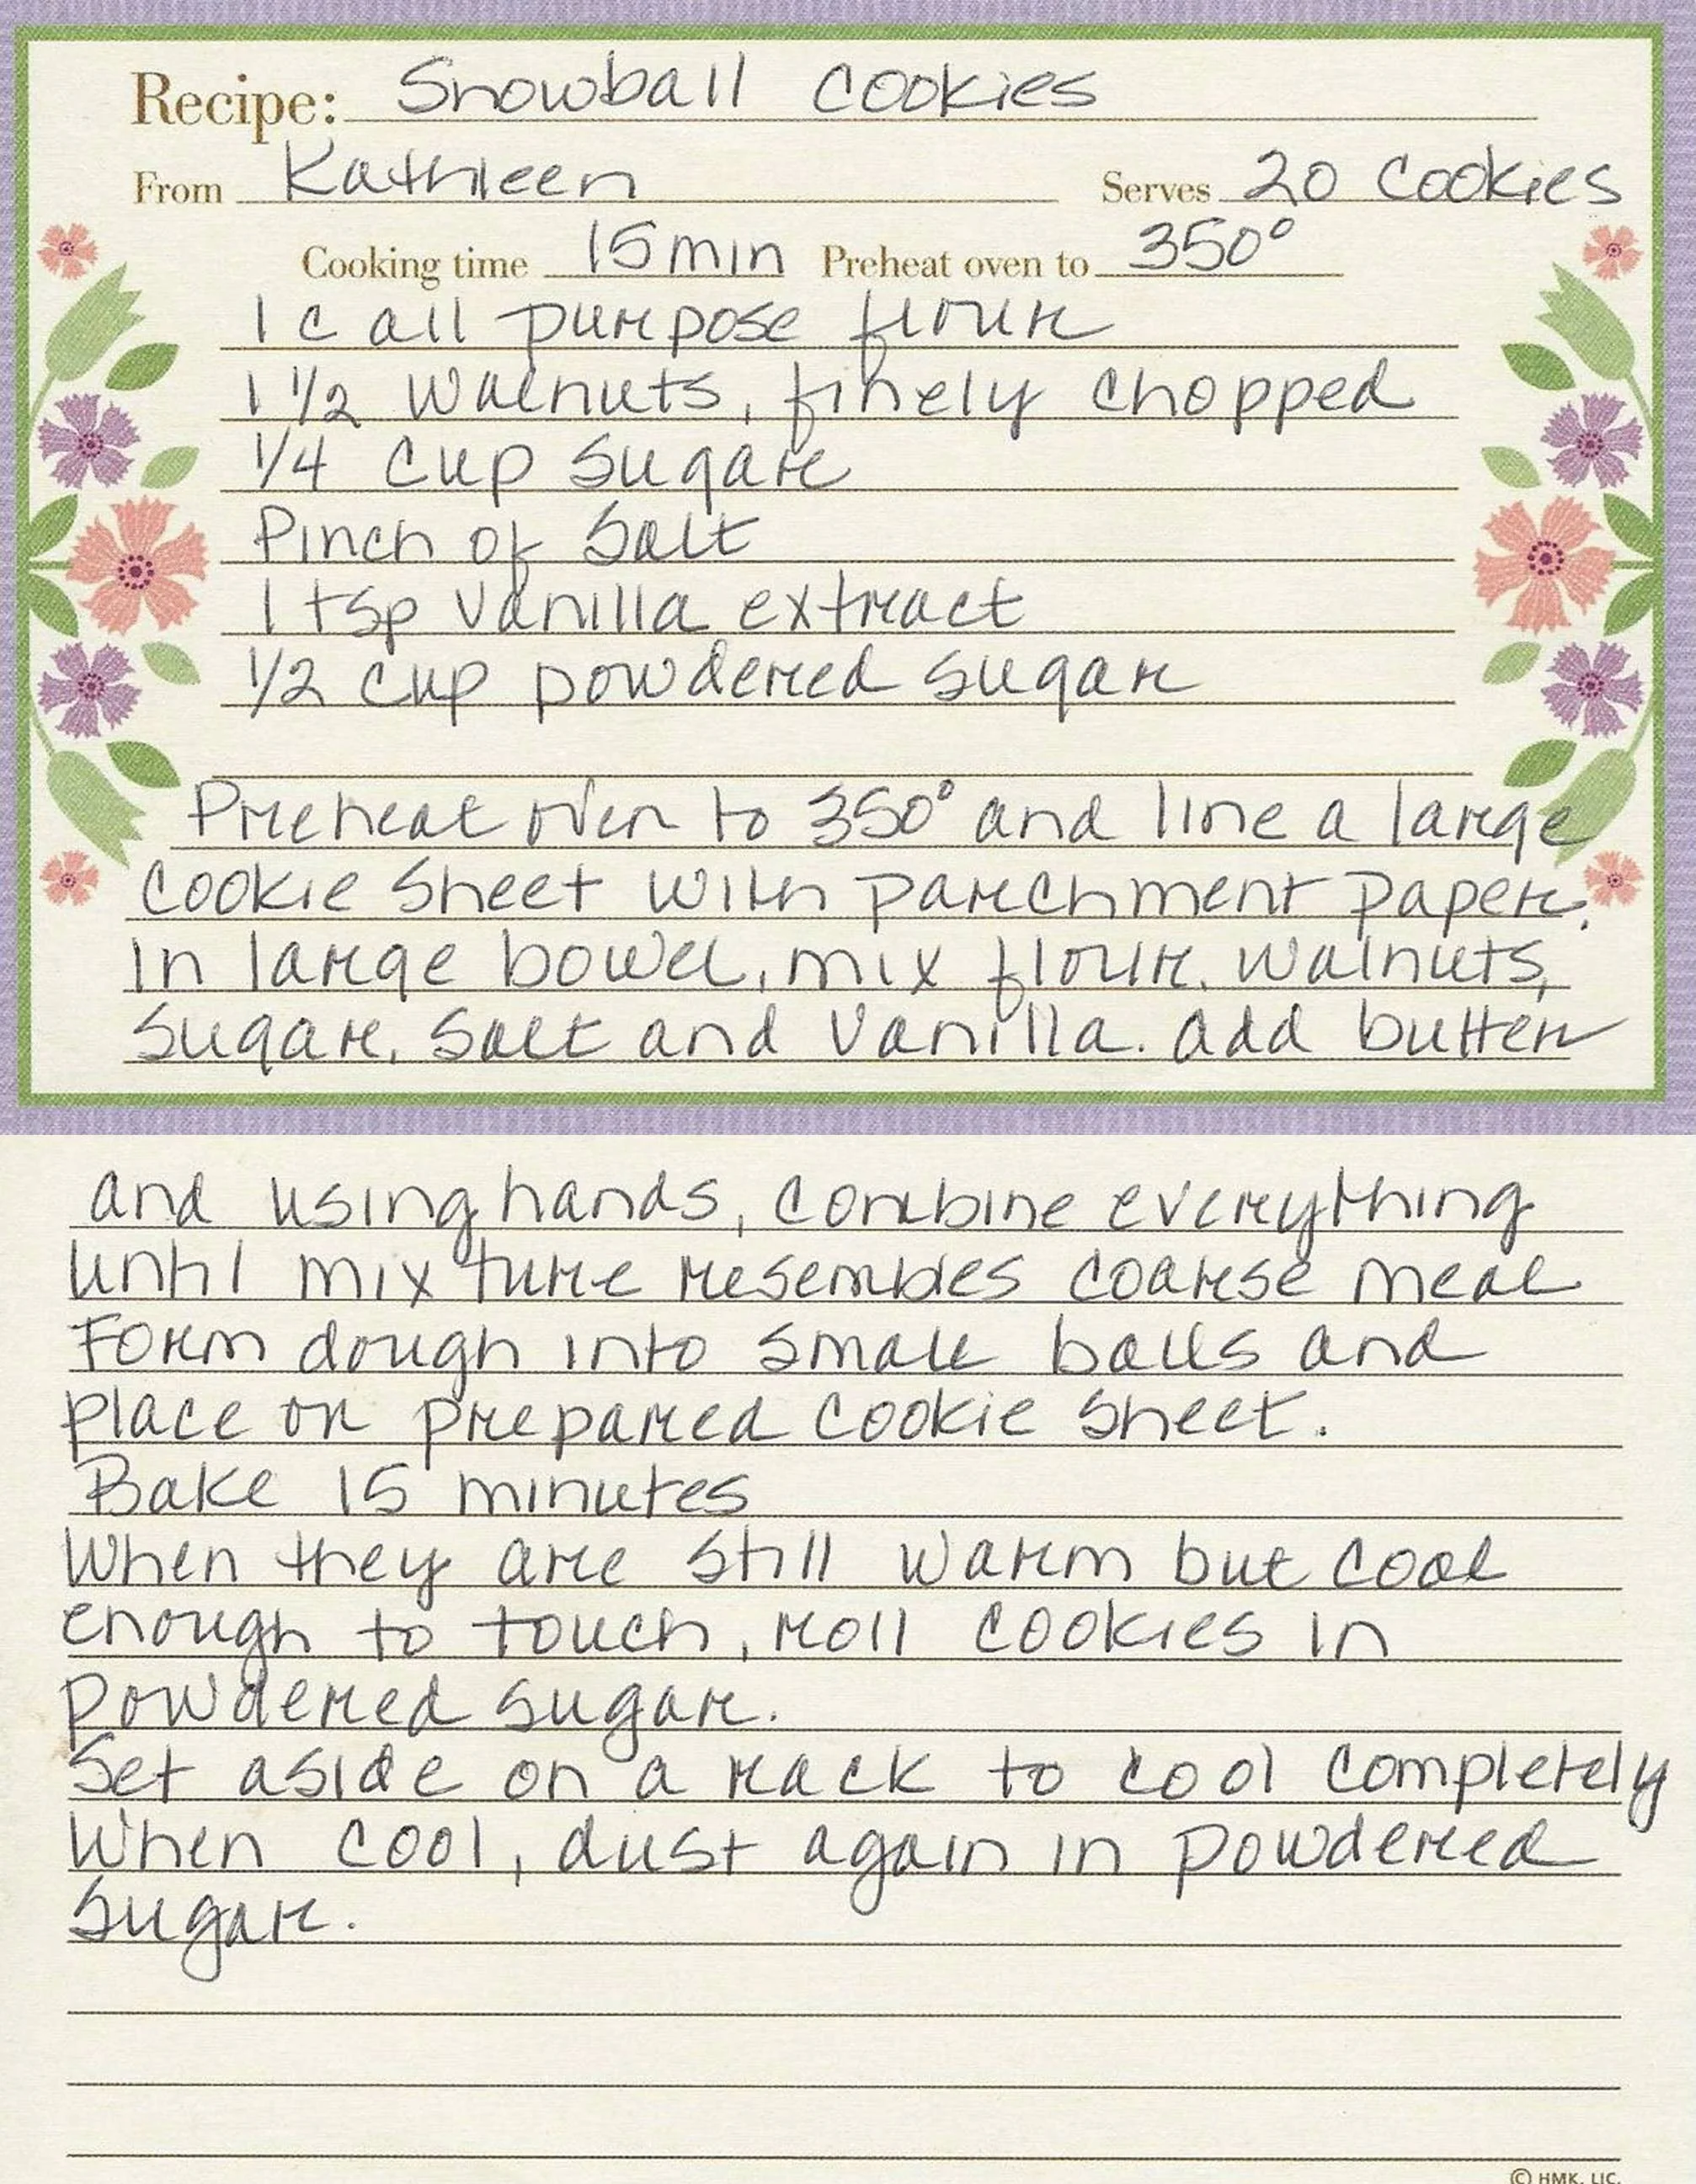 Recipe: Snowball Cookies
From Kathleen Serves 20 Cookies
Cooking time 15 min Preheat oven to 350°
1 c all purpose flour
1 1/2 walnuts, finely chopped
1/4 cup sugar
Pinch of Salt
1 tsp vanilla extract
1/2 cup powdered sugar
Preheat oven to 350° and line a large
cookie sheet with parchment paper.
In large bowel, mix flour, walnuts,
sugar, salt and vanilla. add butter
and using hands, combine everything
until mixture resembles coarse meal
Form dough into small balls and
place on prepared cookie sheet.
Bake 15 minutes
When they are still warm but cool
enough to touch, roll cookies in
powdered sugar.
Set aside on a rack to cool completely
When cool, dust again in powdered
sugar.
© HMK. LIC.